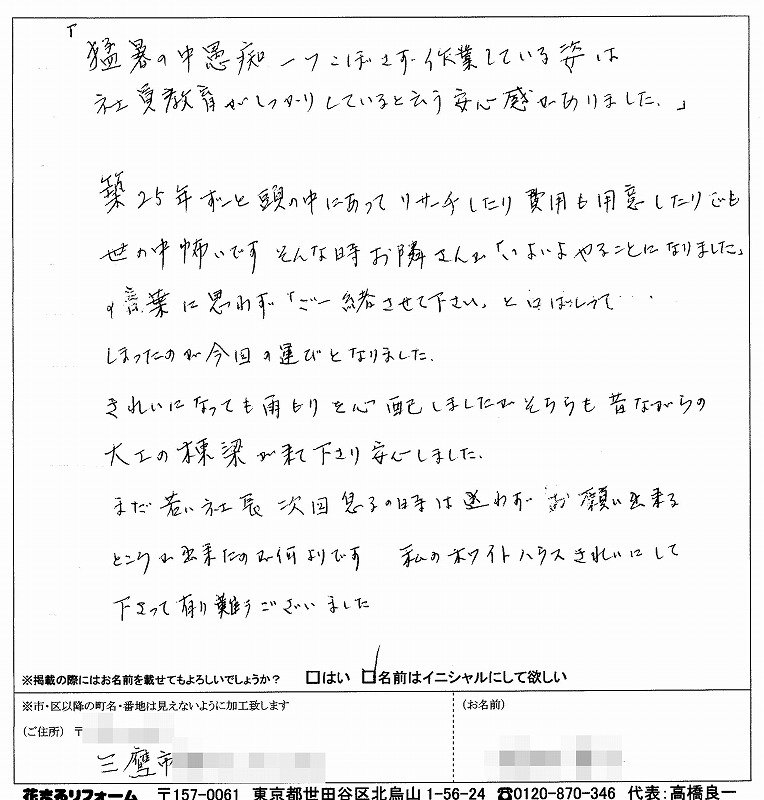 「猛暑の中愚痴一つこぼさず作業している姿は
社員教育がしっかりしていると云う安心感がありました。」
築25年ずーと頭の中にあってリサーチしたり費用も用意したりでも
世の中怖いです そんな時お隣さんが「いよいよやることになりました」
の言葉に思わず「ご一緒させて下さい」と口ばしって…
しまったのが今回の運びとなりました。
きれいになっても雨もりを心配しましたがそちらも昔ながらの
大工の棟梁が来て下さり安心しました。
まだ若い社長 次回息子の時は迷わず お願い出来る
ところが出来たのが何よりです 私のホワイトハウスきれいにして
下さって有り難うございました
※掲載の際にはお名前を載せてもよろしいでしょうか? □はい □名前はイニシャルにして欲しい
※市・区以降の町名・番地は見えないように加工致します (お名前)
(ご住所) 〒
三鷹市
花まるリフォーム 〒157-0061 東京都世田谷区北烏山1-56-24 ☎0120-870-346 代表:高橋良一